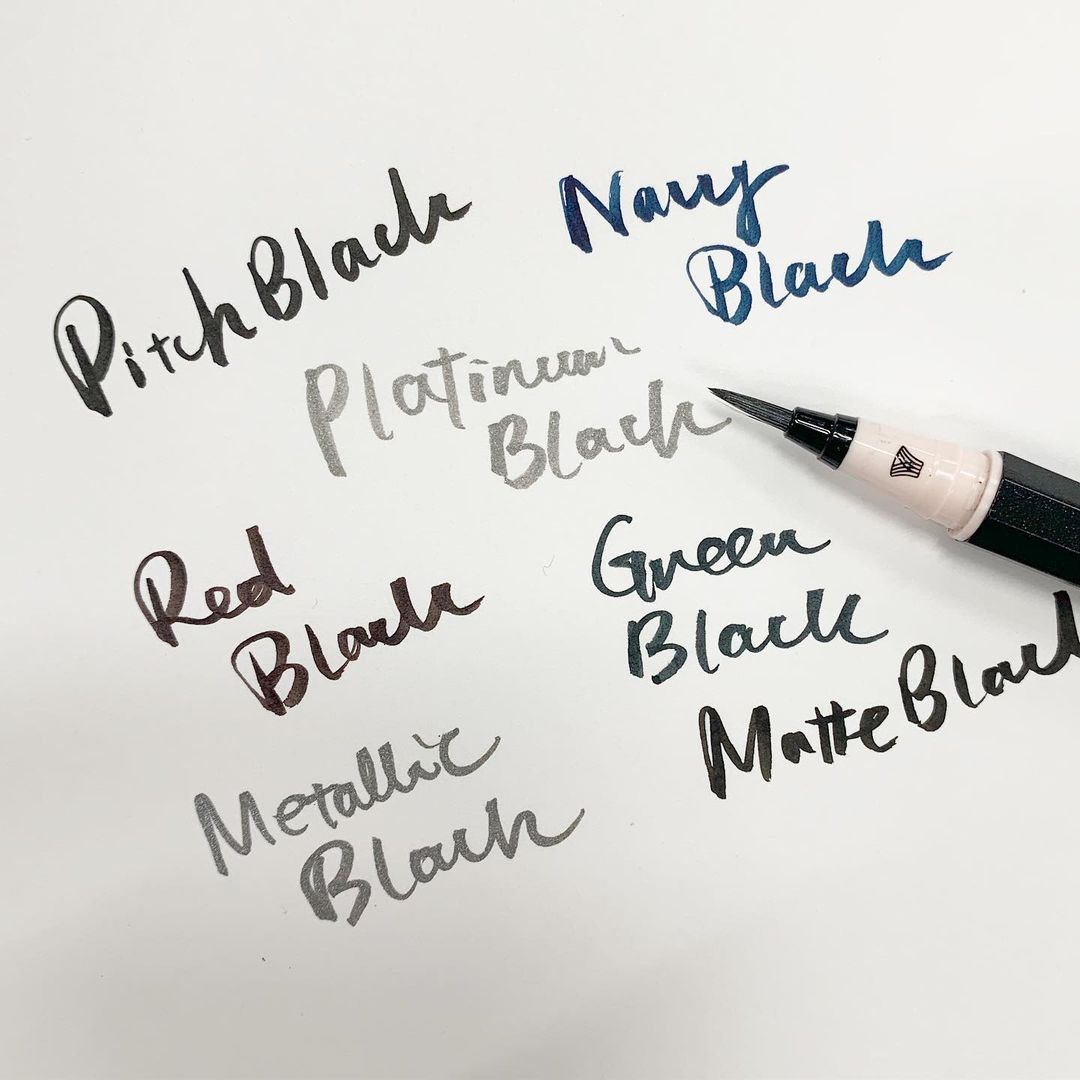 Pitch Black
Navy
Black
Platinum
Black
Red
Black
Green
Black
Matte Black
Metallic
Black